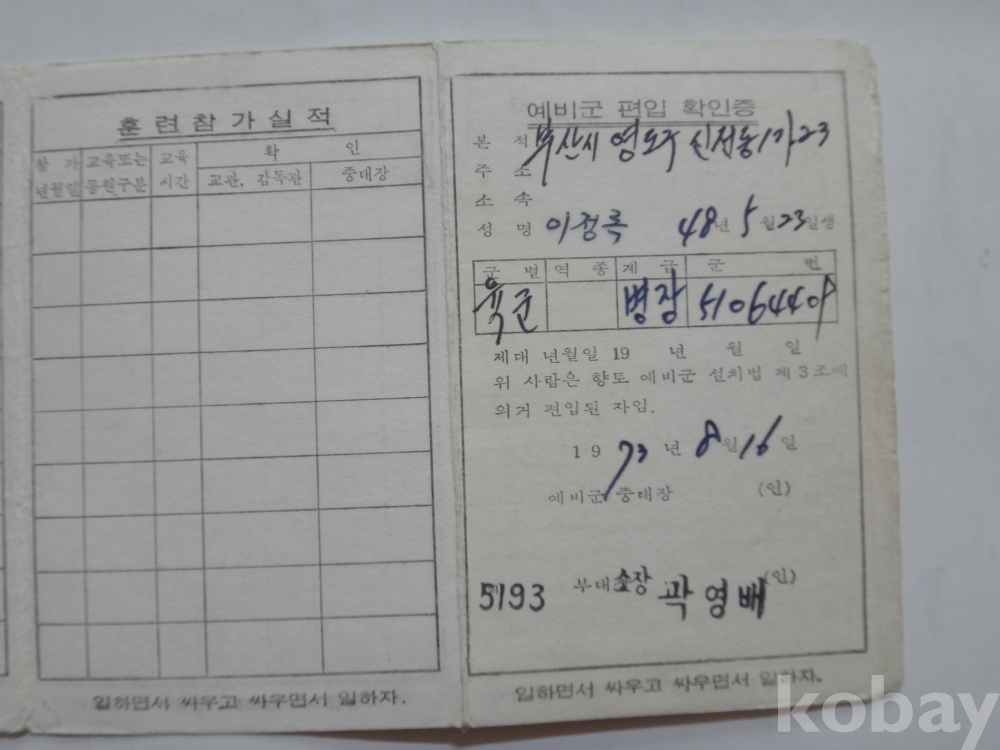 훈련참가실적
참가 년월일 교육또는 동원구분 교육 시간 확인
교관, 감독관 중대장
일하면서 싸우고 싸우면서 일하자.
예비군 편입 확인증
본적 부산시 영도구 신선동1가23
주소
소속
성명 이정록 48년 5월23일생
군별 역종 계급 군번
육군 병장 51064409
제대 년월일 19 년 월 일
위 사람은 향도 예비군 설치법 제3조에
의거 편입된 자임.
1973년 8월16일
예비군 중대장 (인)
5193 부대 소장 곽영배 (인)
일하면서 싸우고 싸우면서 일하자.
kobay